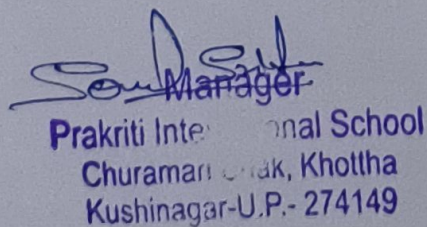 Manager
Prakriti Inte onal School
Churaman ak, Khottha
Kushinagar-U.P.- 274149